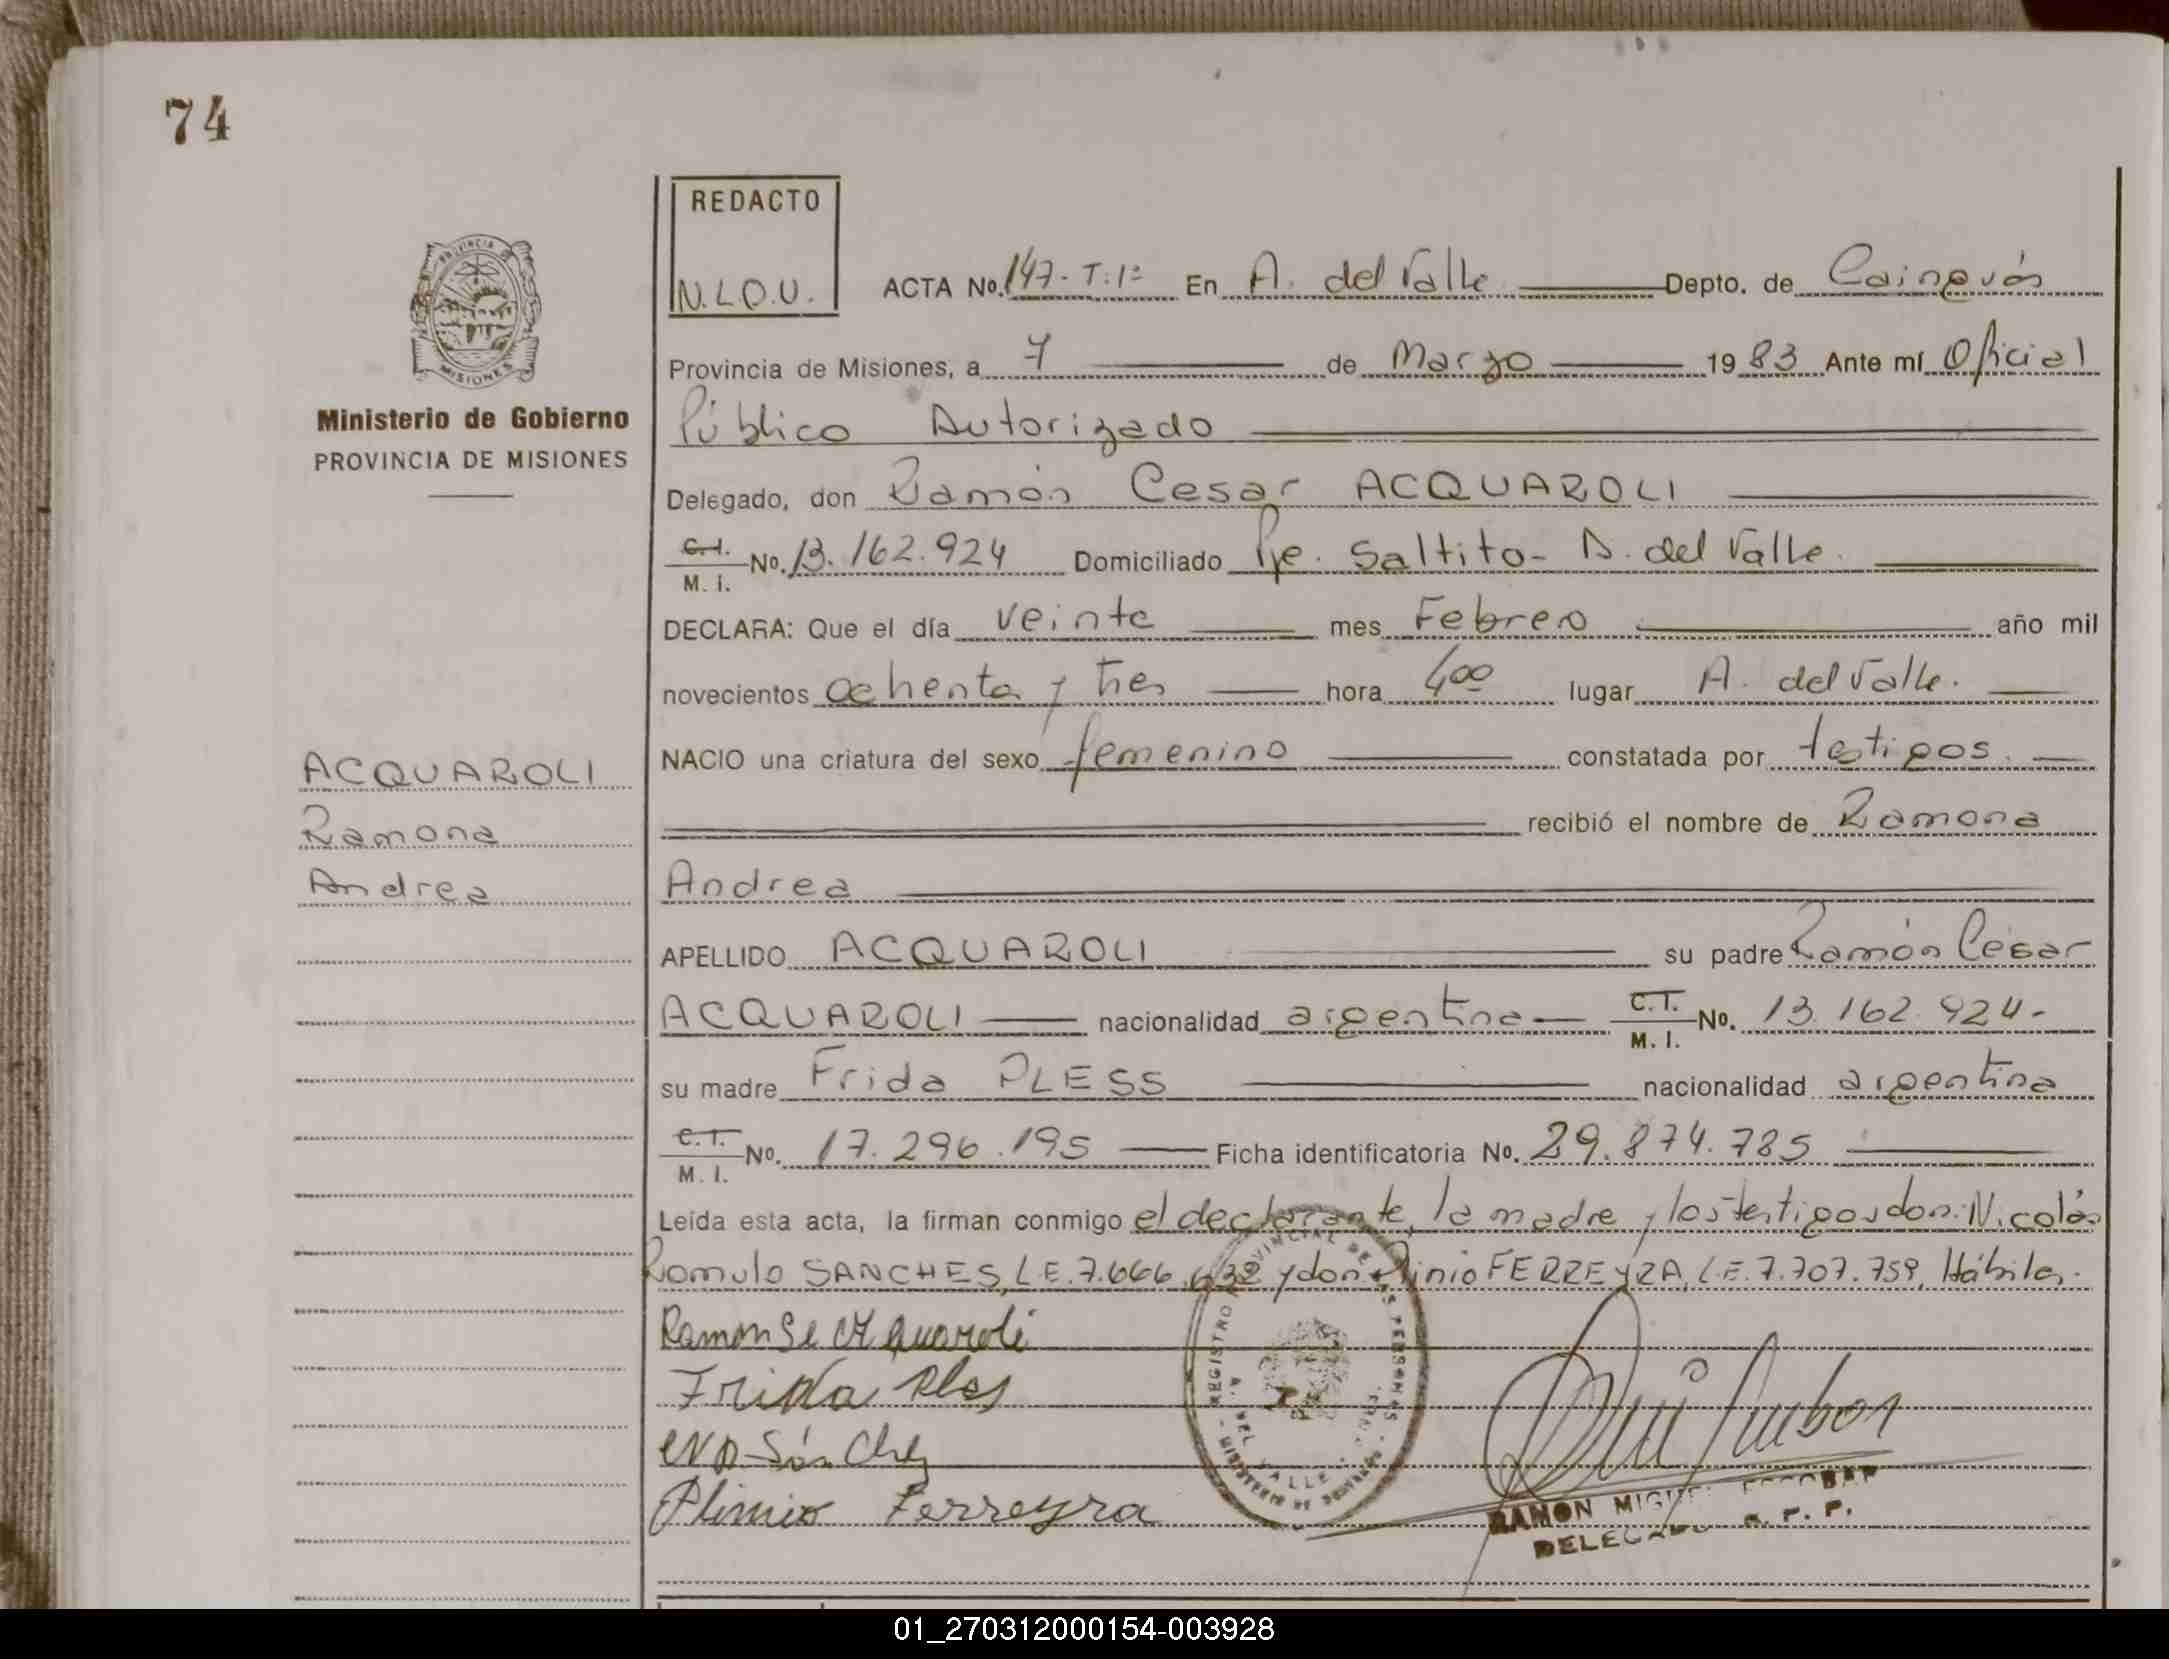 74
REDACTO
N.L.O.U.
ACTA No. 147- T: 1º En A. del Valle Depto. de Cainguás
Provincia de Misiones, a 7 de Marzo 1983 Ante mí Oficial
Público Autorizado
Delegado, don Ramón Cesar ACQUAROLI
C.I. M. I. No. 13.162.924 Domiciliado Pje. Saltito- A. del Valle.
DECLARA: Que el día veinte mes Febrero año mil
novecientos ochenta y tres hora 400 lugar A. del Valle.
NACIO una criatura del sexo femenino constatada por testigos.
recibió el nombre de Ramona
Andrea
APELLIDO ACQUAROLI su padre Ramón César
ACQUAROLI nacionalidad argentina C.I. M. I. No. 13.162.924-
su madre Frida PLESS nacionalidad argentina
C.I. M. I. No. 17.296.195 Ficha identificatoria No. 29.874.785
Leída esta acta, la firman conmigo el declarante, la madre y los testigos don: Nicolás
Romulo SANCHES, L.E. 7.666.632 y don Plinio FERREYRA, L.E. 7.707.759, Hábiles.
Frida Ples
Sánchez
Plinio Ferreyra
RAMON MIGUEL ESCOBAR
DELEGADO R. P. P.
REGISTRO PROVINCIAL DE LAS PERSONAS
A. DEL VALLE
MINISTERIO DE GOBIERNO
PROVINCIA
MISIONES
Ministerio de Gobierno
PROVINCIA DE MISIONES
ACQUAROLI
Ramona
Andrea
01_270312000154-003928